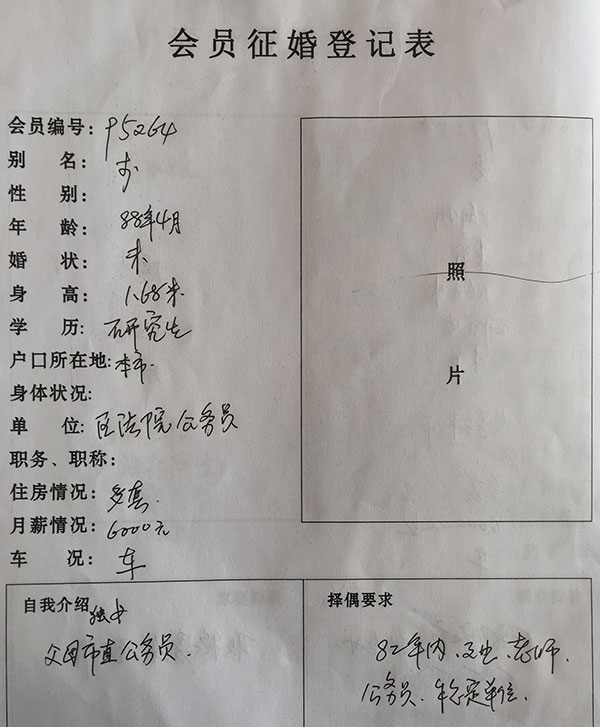 会员征婚登记表
会员编号: 95264
别 名:
性 别:
年 龄: 88年4月
婚 状: 未
身 高: 1.68米
学 历: 研究生
户口所在地: 本市.
身体状况:
单 位: 区法院公务员
职务、职称:
住房情况: 多套.
月薪情况: 6000元
车 况: 车
照
片
自我介绍 独女
父母市直公务员.
择偶要求
82年内、老师.
公务员.稳定单位.